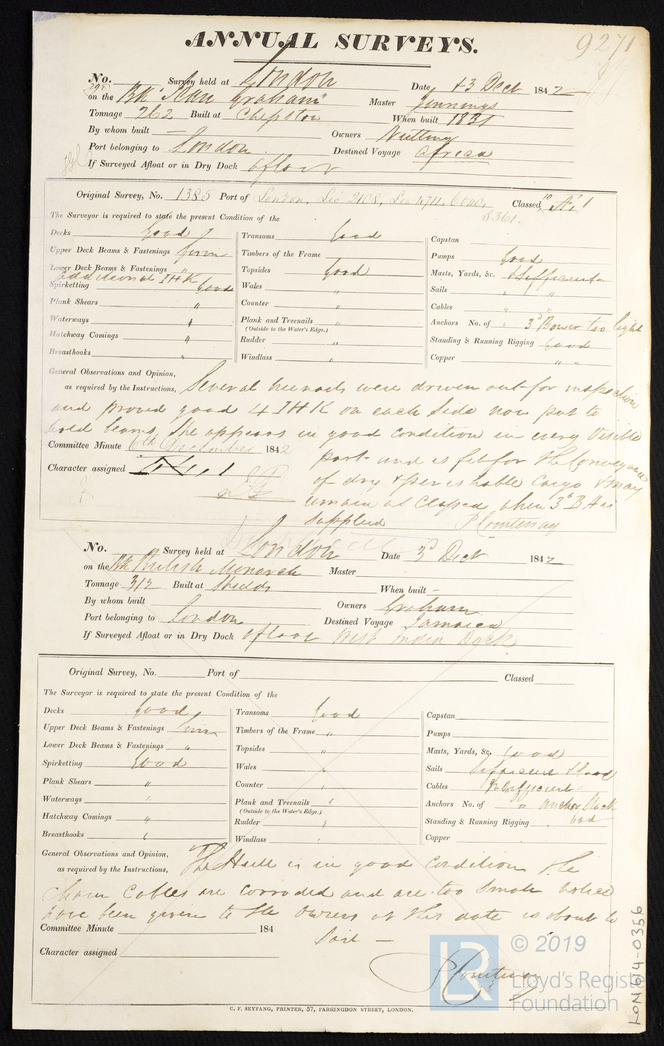 ANNUAL SURVEYS.
9271
No. Survey held at London Date 3 Dect 1842
on the Bk "Jean Graham" Master Jennings
Tonnage 262 Built at Chepstow When built 1821
By whom built — Owners Nutting
Port belonging to London Destined Voyage Africa
If Surveyed Afloat or in Dry Dock afloat
Original Survey, No. 1385 Port of London, Classed A 1
8361.
The Surveyor is required to state the present Condition of the
Decks Good
Upper Deck Beams & Fastenings Firm
Lower Deck Beams & Fastenings "
additional IHK
Spirketting Good
Plank Shears "
Waterways "
Hatchway Comings "
Breasthooks "
Transoms Good
Timbers of the Frame
Topsides Good
Wales "
Counter "
Plank and Treenails "
(Outside to the Water's Edge.)
Rudder "
Windlass "
Capstan
Pumps Good
Masts, Yards, &c. Sufficient
Sails "
Cables "
Anchors No. of 3d Bower too light
Standing & Running Rigging Good
Copper "
General Observations and Opinion,
as required by the Instructions, Several treenails were driven out for inspection
and proved good 4 IHK on each side now put to
hold beams, She appears in good condition in every visible
Committee Minute 6th December 1842
part and is fit for the Conveyance
Character assigned
of dry & perishable Cargo & may
remain as Classed, when 3d B A is
supplied P Courtenay
No. Survey held at London Date 3d Dect 1842
on the Bk British Monarch Master
Tonnage 312 Built at Shields When built –
By whom built Owners Graham
Port belonging to London Destined Voyage Jamaica
If Surveyed Afloat or in Dry Dock afloat West India Dock
Original Survey, No. Port of Classed
The Surveyor is required to state the present Condition of the
Decks Good
Upper Deck Beams & Fastenings Firm
Lower Deck Beams & Fastenings "
Spirketting Good
Plank Shears "
Waterways "
Hatchway Comings "
Breasthooks "
Transoms Good
Timbers of the Frame "
Topsides "
Wales "
Counter "
Plank and Treenails "
(Outside to the Water's Edge.)
Rudder "
Windlass "
Capstan
Pumps
Masts, Yards, &c. Good
Sails Sufficient & Good
Cables Insufficient
Anchors No. of " anchor Stock
Standing & Running Rigging bad
Copper
General Observations and Opinion,
as required by the Instructions, The Hull is in good condition the
Chain Cables are corroded and are too small notice
have been given to the owners of this date is about to
Committee Minute 184
Sail —
Character assigned
P Courtenay
C. F. SEYFANG, PRINTER, 57, FARRINGDON STREET, LONDON.
LON614-0356
LR © 2019
Lloyd's Register
Foundation